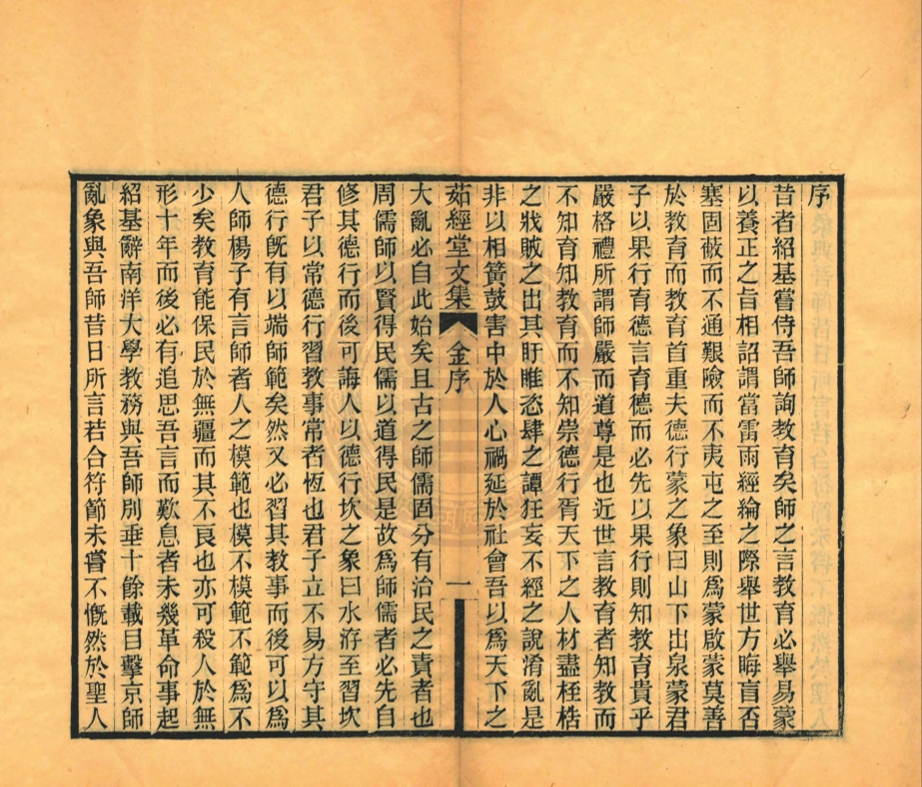 序
昔者紹基嘗侍吾師詢教育矣師之言教育必舉易蒙
以養正之旨相詔謂當雷雨經綸之際舉世方晦盲否
塞固蔽而不通艱險而不夷屯之至則爲蒙啟蒙莫善
於教育而教育首重夫德行蒙之象曰山下出泉蒙君
子以果行育德言育德而必先以果行則知教育貴乎
嚴格禮所謂師嚴而道尊是也近世言教育者知教而
不知育知教育而不知崇德行胥天下之人材盡桎梏
之戕賊之出其盱睢恣肆之譚狂妄不經之說淆亂是
非以相簧鼓害中於人心禍延於社會吾以爲天下之
茹經堂文集 金序 一
大亂必自此始矣且古之師儒固分有治民之責者也
周儒師以賢得民儒以道得民是故爲師儒者必先自
修其德行而後可誨人以德行坎之象曰水洊至習坎
君子以常德行習教事常者恆也君子立不易方守其
德行旣有以端師範矣然又必習其教事而後可以爲
人師楊子有言師者人之模範也模不模範不範爲不
少矣教育能保民於無疆而其不良也亦可殺人於無
形十年而後必有追思吾言而歎息者未幾革命事起
紹基辭南洋大學教務與吾師別垂十餘載目擊京師
亂象與吾師昔日所言若合符節未嘗不慨然於聖人